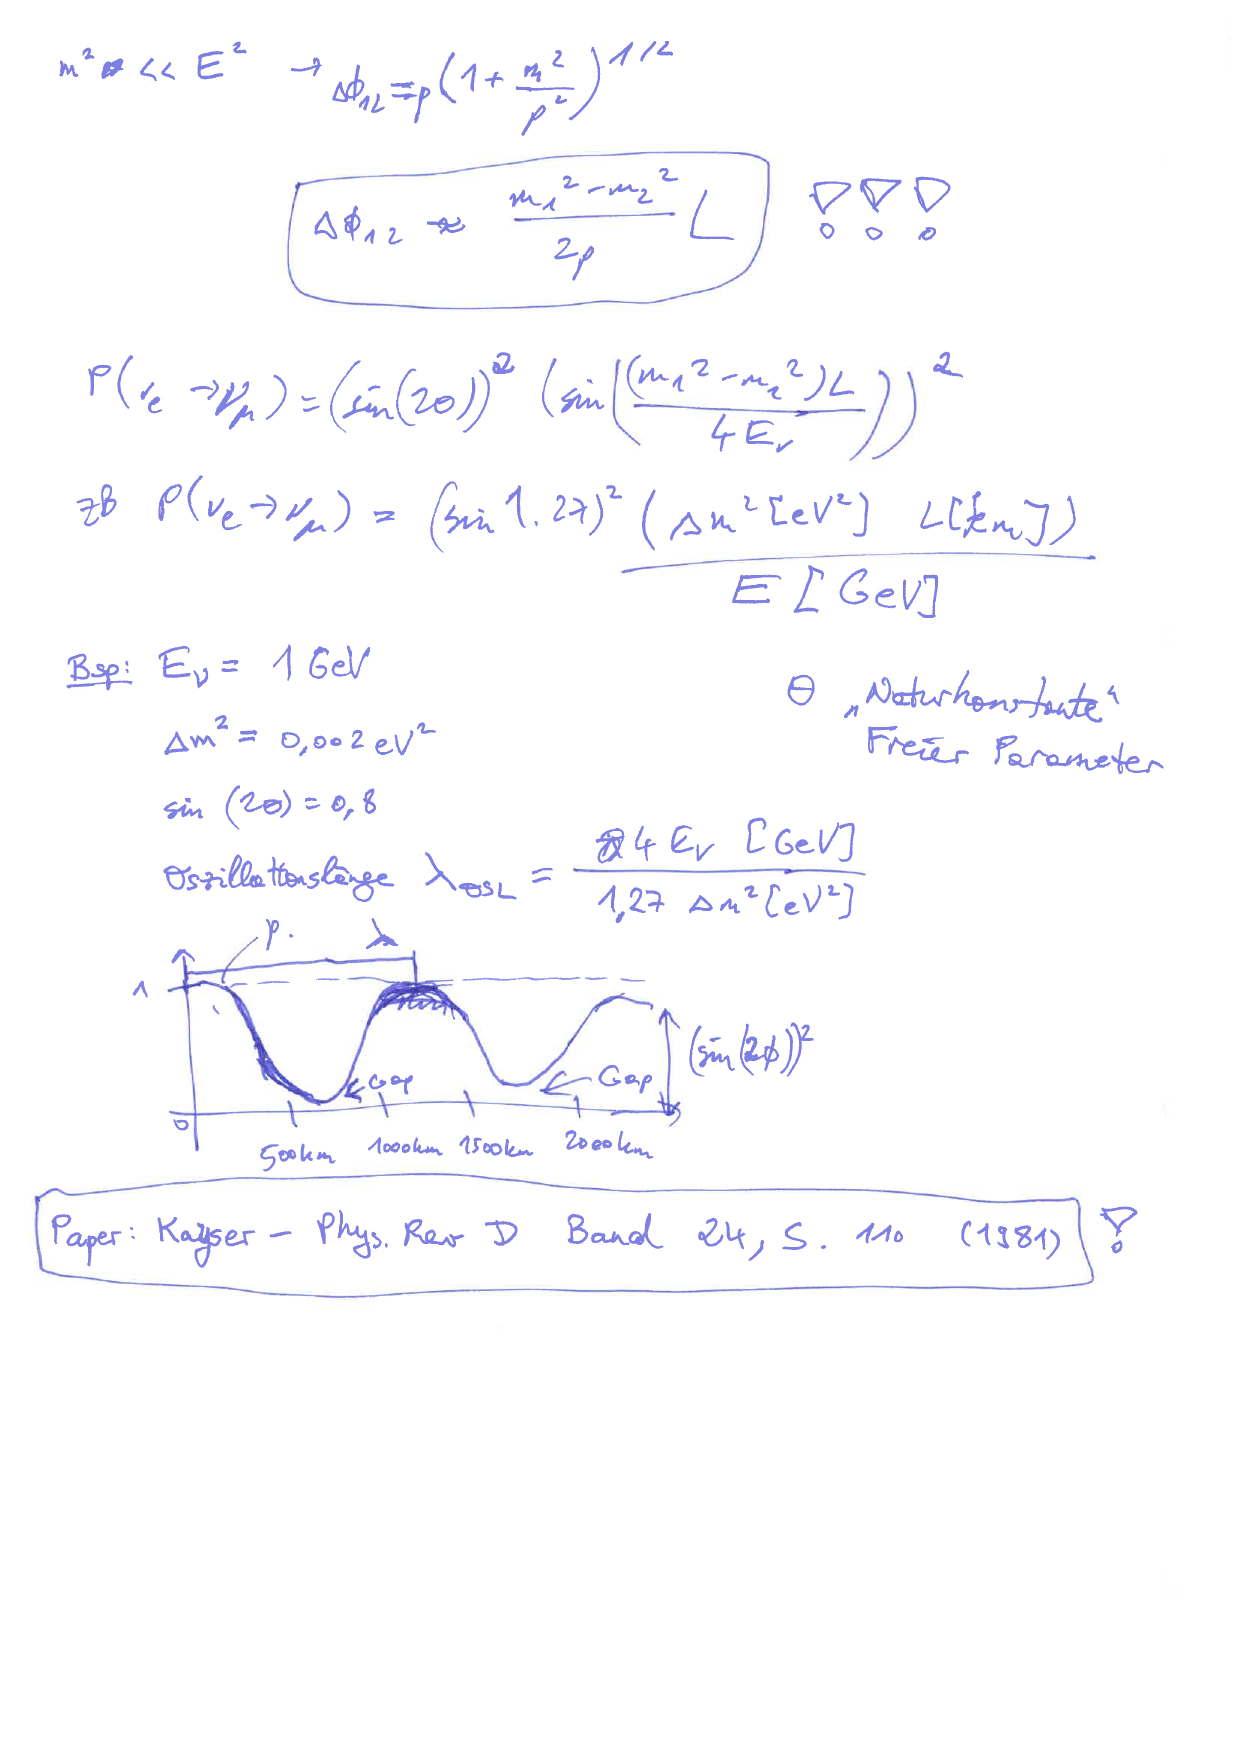 m² << E² → Δϕ₁₂ = p(1 + m²/p²)^1/2
Δϕ₁₂ ≈ (m₁² - m₂²)/2p L !!!
P(νe → νμ) = (sin(2θ))² (sin((m₁² - m₂²)L / 4Eν))²
zB P(νe → νμ) = (sin 1.27)² (Δm²[eV²] L[km]) / E[GeV]
Bsp: Eν = 1 GeV
θ „Naturkonstante“
Freier Parameter
Δm² = 0,002 eV²
sin (2θ) = 0,8
Oszillationslänge λOSL = 4 Eν [GeV] / 1,27 Δm² [eV²]
p. λ
1
(sin(2ϕ))²
Gap Gap
0
500km 1000km 1500km 2000km
Paper: Kayser - Phys. Rev D Band 24, S. 110 (1981) !